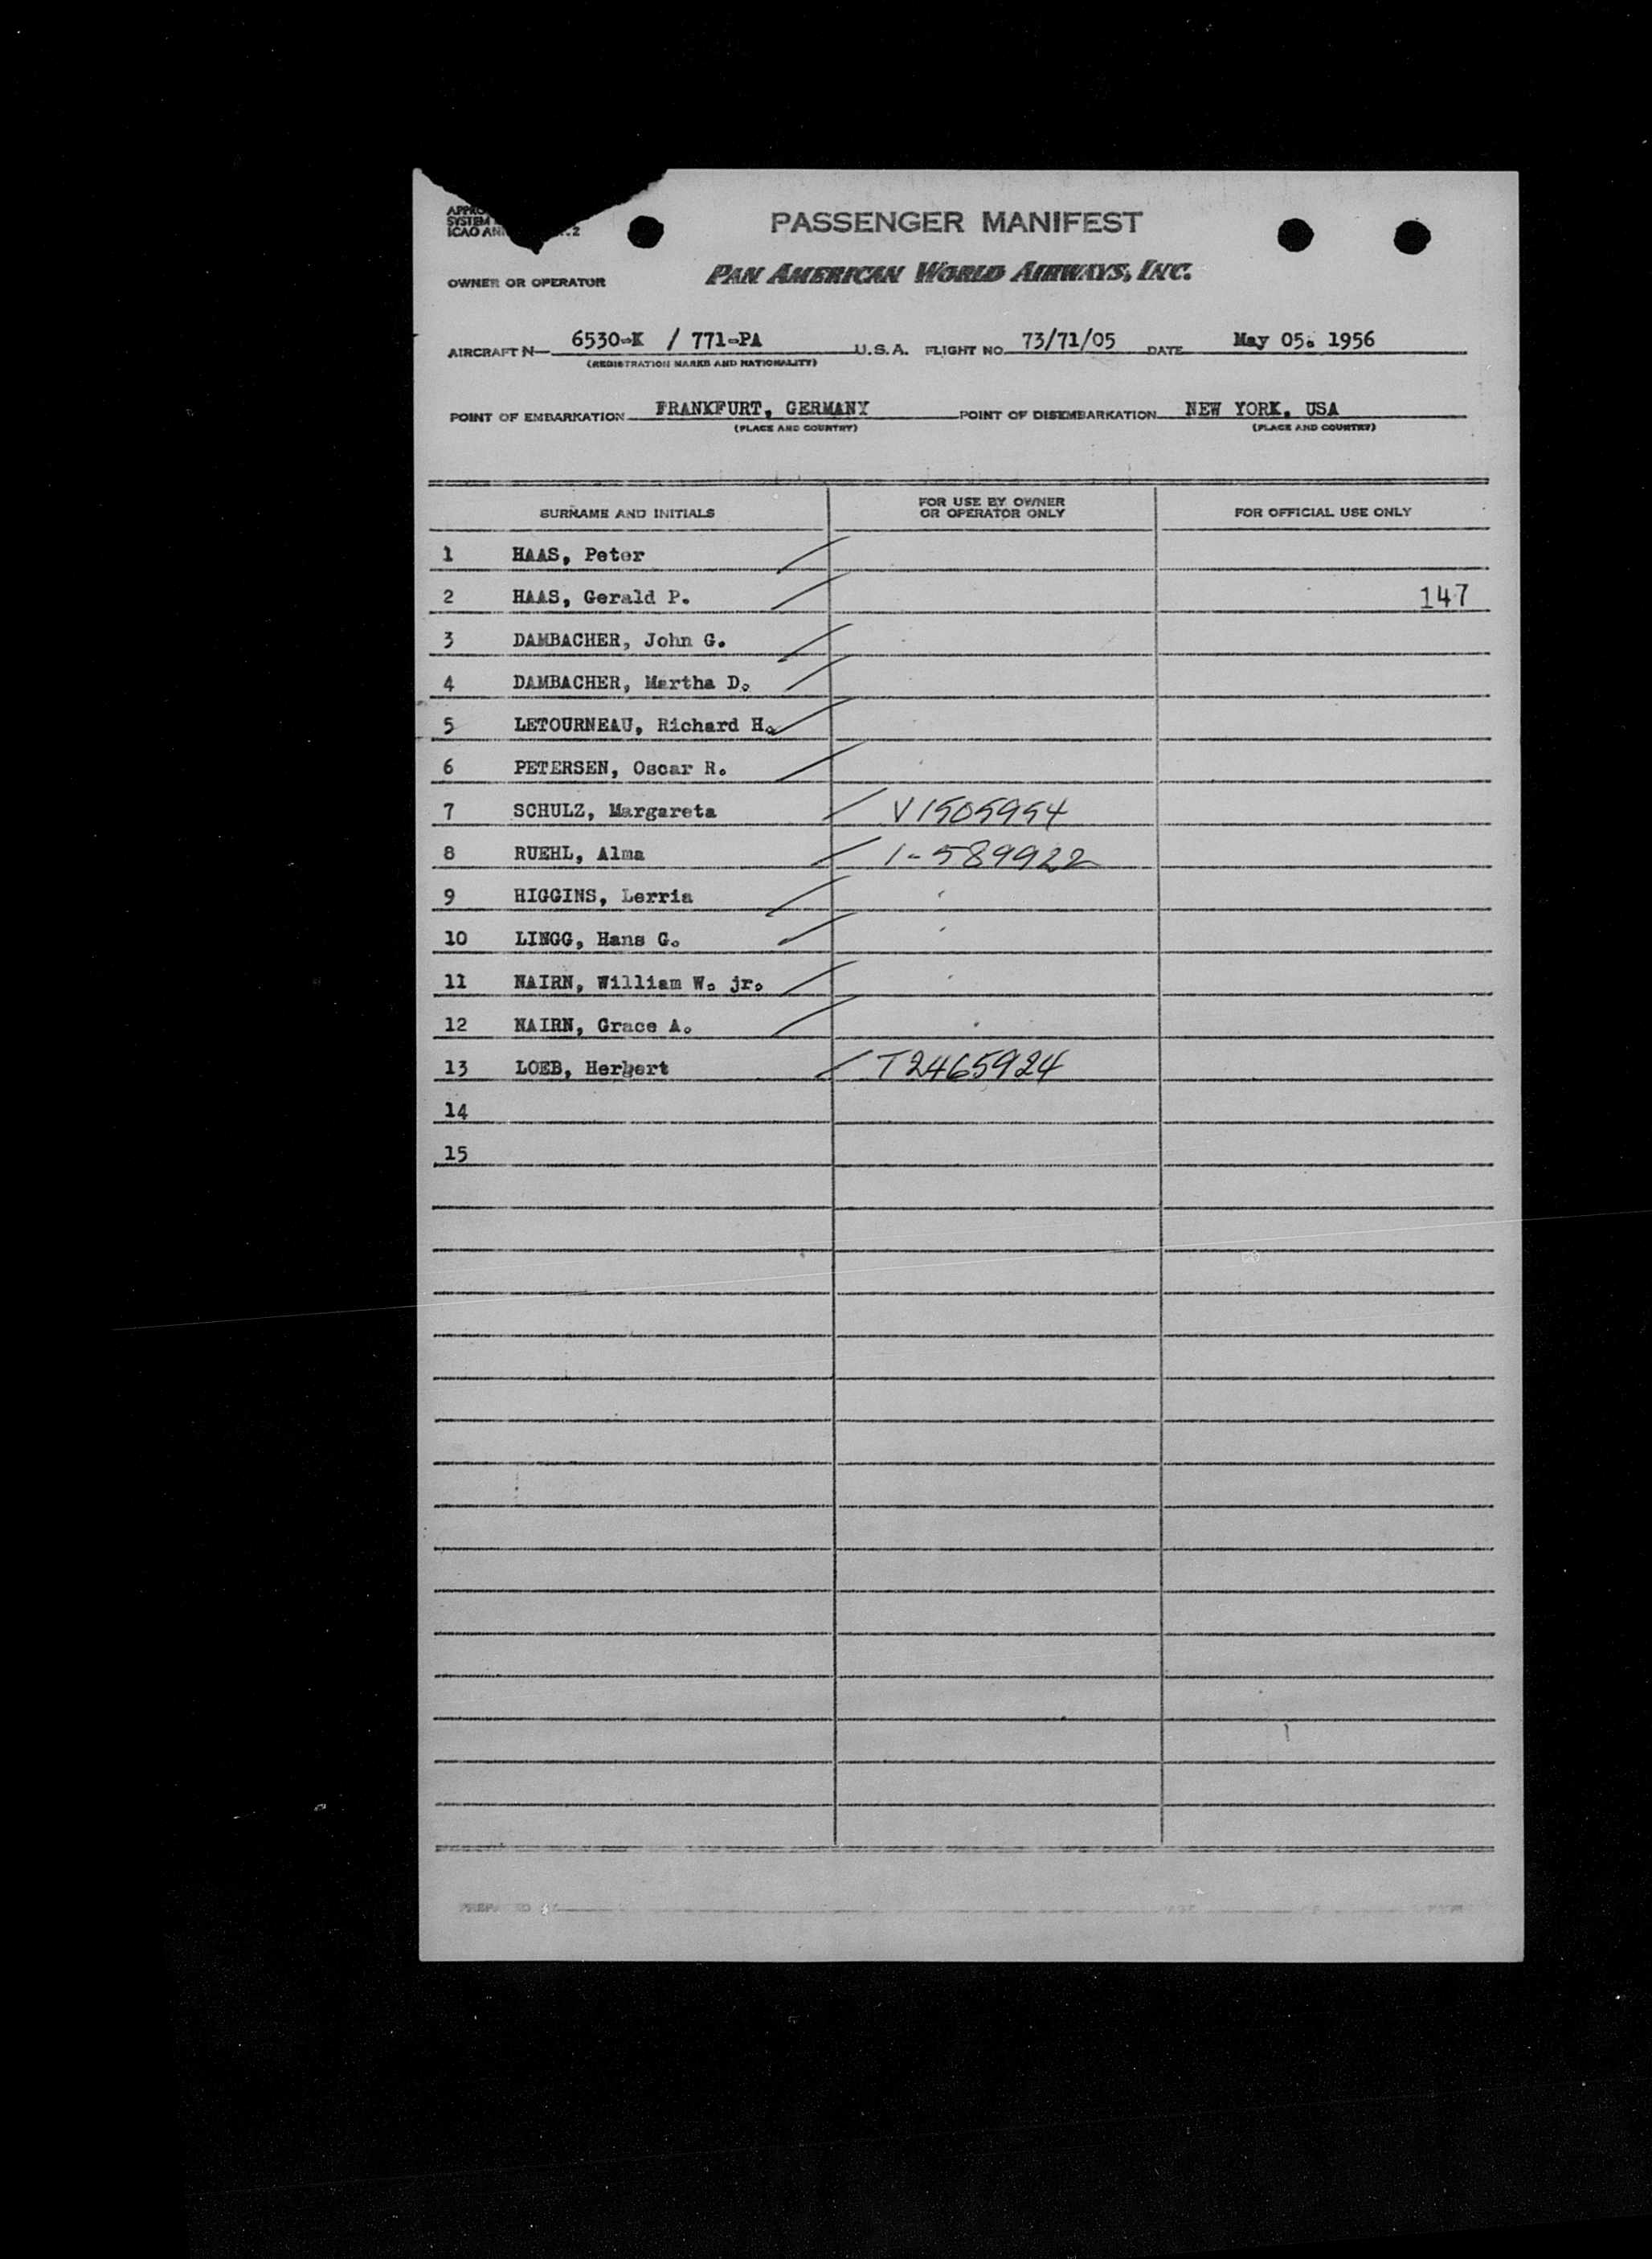 PASSENGER MANIFEST
PAN AMERICAN WORLD AIRWAYS, INC.
OWNER OR OPERATOR
AIRCRAFT N- 6530-K / 771-PA U.S.A. FLIGHT NO. 73/71/05 DATE May 05. 1956
(REGISTRATION MARKS AND NATIONALITY)
POINT OF EMBARKATION FRANKFURT, GERMANY POINT OF DISEMBARKATION NEW YORK, USA
(PLACE AND COUNTRY) (PLACE AND COUNTRY)
SURNAME AND INITIALS FOR USE BY OWNER OR OPERATOR ONLY FOR OFFICIAL USE ONLY
1 HAAS, Peter
2 HAAS, Gerald P. 147
3 DAMBACHER, John G.
4 DAMBACHER, Martha D.
5 LETOURNEAU, Richard H.
6 PETERSEN, Oscar R.
7 SCHULZ, Margareta V1505954
8 RUEHL, Alma 1-589922
9 HIGGINS, Lerria
10 LINGG, Hans G.
11 NAIRN, William W. jr.
12 NAIRN, Grace A.
13 LOEB, Herbert T2465924
14
15